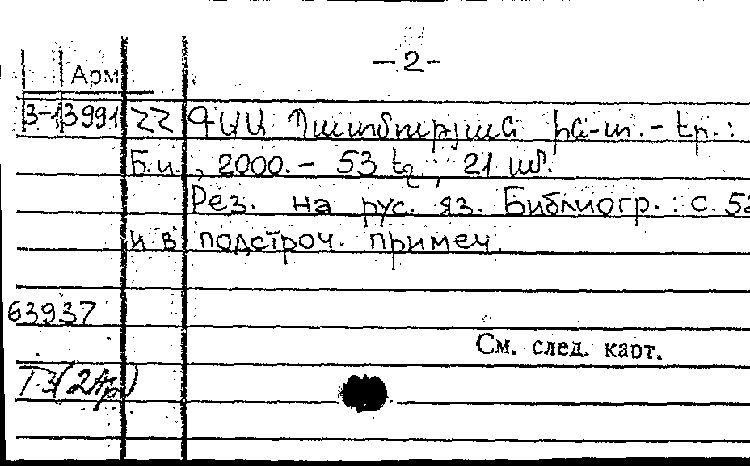 -2-
Арм
3-13991 ՀՀ ԳԱԱ Պատմության ին-տ.- Եր.:
Б.и., 2000.- 53 էջ, 21 սմ.
Рез. на рус. яз. Библиогр.: с. 52
и в подстроч. примеч.
63937
См. след. карт.
Т3(2Ар)